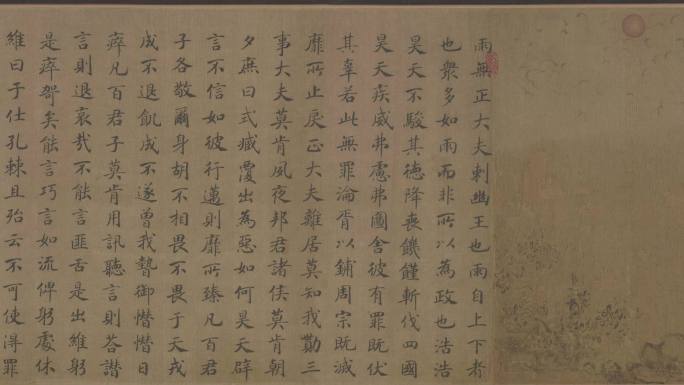 雨無正大夫刺幽王也雨自上下者
也衆多如雨而非所以為政也浩浩
昊天不駿其德降喪饑饉斬伐四國
昊天疾威弗慮弗圖舍彼有罪既伏
其辜若此無罪淪胥以鋪周宗既滅
靡所止戾正大夫離居莫知我勩三
事大夫莫肯夙夜邦君諸侯莫肯朝
夕庶曰式臧覆出為惡如何昊天辟
言不信如彼行邁則靡所臻凡百君
子各敬爾身胡不相畏不畏于天戎
成不退飢成不遂曾我暬御憯憯日
瘁凡百君子莫肯用訊聽言則荅譖
言則退哀哉不能言匪舌是出維躬
是瘁哿矣能言巧言如流俾躬處休
維曰于仕孔棘且殆云不可使得罪